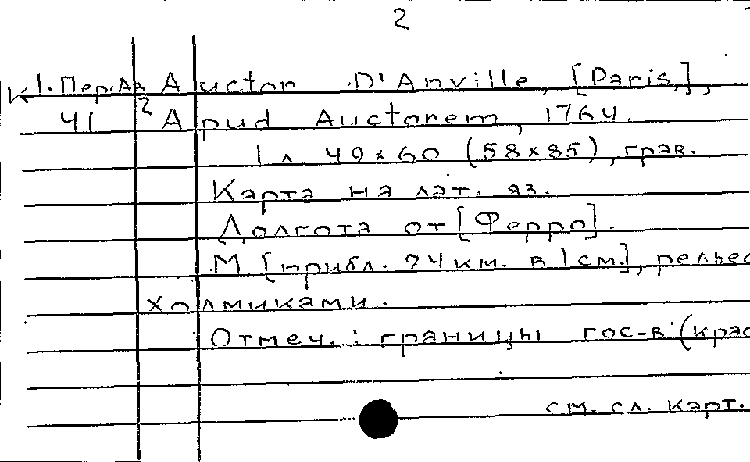 2
1. Пер.Аз Auctor D'Anville, [Paris,],
41 2 Apud Auctorem, 1764.
1 л 49×60 (58×85), грав.
Карта на лат. яз.
Долгота от [Ферро].
М [прибл. 74 км. в 1 см.], рельеф
холмиками.
Отмеч.: границы гос-в (крас
см. сл. карт.